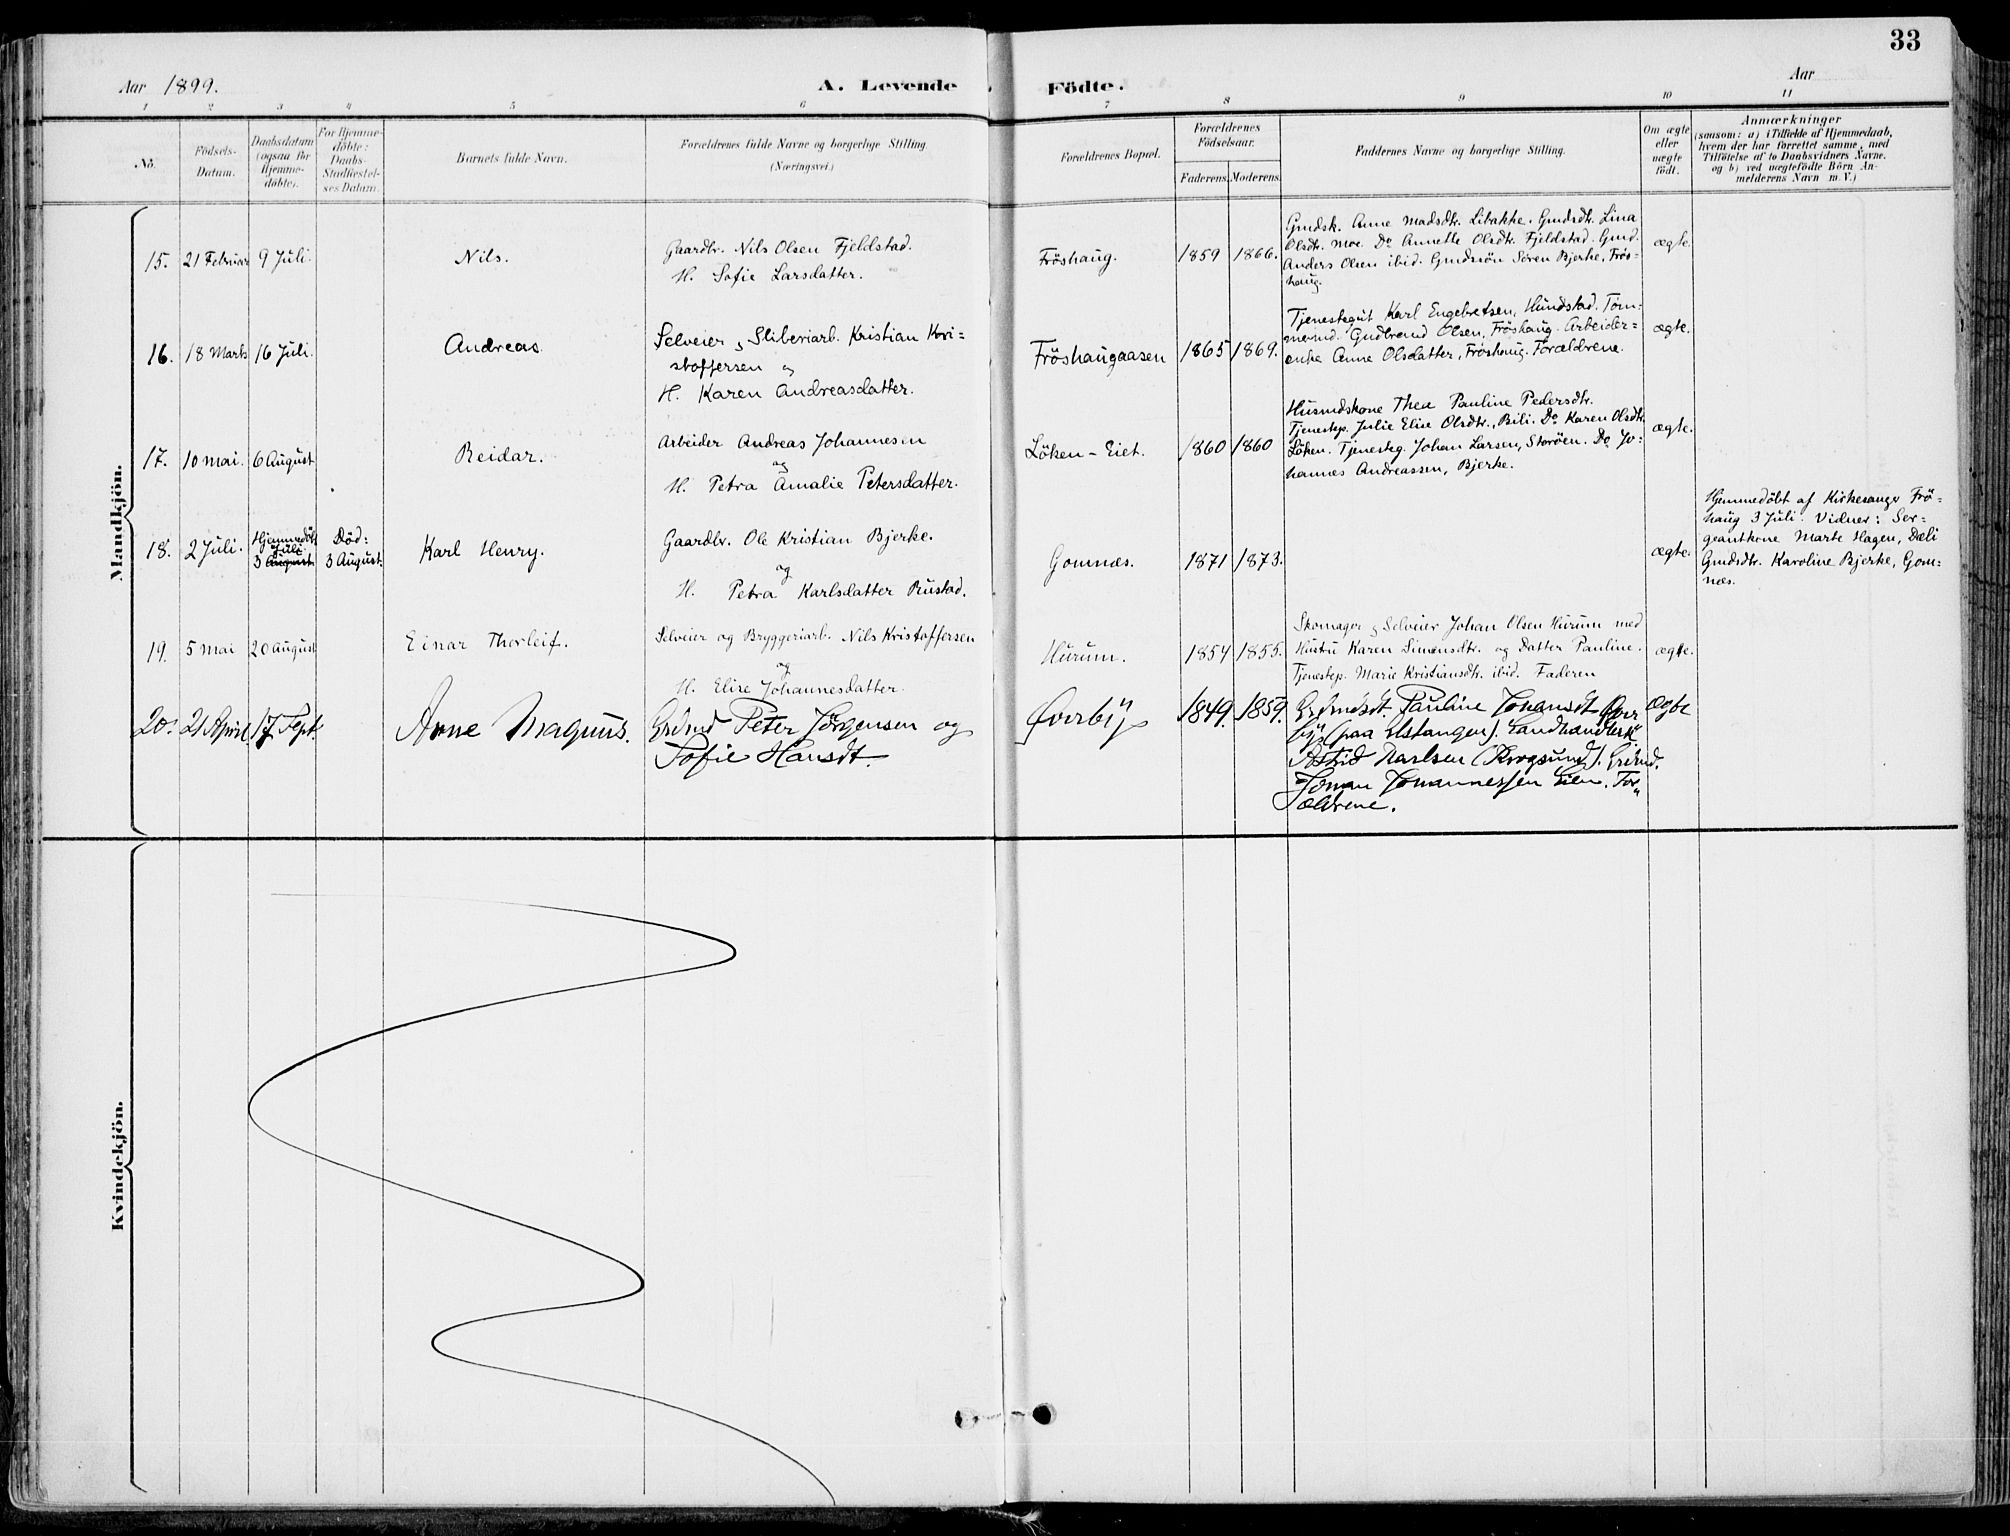 33
Aar 1899.
A. Levende Födte.
Aar
1 2 3 4 5 6 7 8 9 10 11
No.
Födsels-
Datum.
Daabsdatum
(ogsaa for
Hjemme-
döbte).
For Hjemme-
döbte:
Daabs-
Stadfæstel-
ses Datum.
Barnets fulde Navn.
Forældrenes fulde Navne og borgerlige Stilling
(Næringsvei.)
Forældrenes Bopæl.
Forældrenes
Födselsaar.
Faderens. Moderens.
Faddernes Navne og borgerlige Stilling.
Om ægte
eller
uægte
födt.
Anmærkninger
(saasom: a) i Tilfælde af Hjemmedaab,
hvem der har forrettet samme, med
Tilföielse af to Daabsvidners Navne.
og b) ved uægtefödte Börn An-
melderens Navn m. V.)
Mandkjön.
15. 21 Februar 9 Juli.
Nils.
Gaardbr. Nils Olsen Fjeldstad.
H. Sofie Larsdatter.
Fröshaug.
1859 1866.
Gmdsk. Anne Madsdtr. Libakke. Gmdsdtr. Lina
Olsdtr. Moe. Do Annette Olsdtr. Fjeldstad. Gmd.
Anders Olsen ibid. Gmdssön Sören Bjerke, Frös=
haug.
ægte.
16. 18 Marts 16 Juli.
Andreas
Selveier & Sliberiarb. Kristian Kri=
stoffersen og
H. Karen Andreasdatter.
Fröshaugaasen
1865 1869.
Tjenestegut Karl Engebretsen, Hundstad. Töm=
mermd. Gudbrand Olsen, Fröshaug. Arbeider=
enke Anne Olsdatter, Fröshaug. Forældrene.
ægte.
17. 10 Mai. 6 August
Reidar.
Arbeider Andreas Johannesen
og
H. Petra Amalie Petersdatter.
Löken - Eiet.
1860 1860
Husmdskone Thea Pauline Pedersdtr.
Tjenestep. Julie Elise Olsdtr., Bili. Do Karen Olsdtr.
Löken. Tjenesteg. Johan Larsen, Storöen. Do Jo=
hannes Andreassen, Bjerke.
ægte.
18. 2 Juli.
Hjemmedöbt
Juli
3 August
Död:
3 August.
Karl Henry.
Gaardbr. Ole Kristian Bjerke.
og
H. Petra Karlsdatter Rustad.
Gomnæs.
1871 1873.
ægte.
Hjemmedöbt af Kirkesanger Frö=
haug 3 Juli. Vidner: Ser=
geantkone Marte Hagen, Dæli
Gmdsdtr. Karoline Bjerke, Gom=
næs.
19. 5 Mai 20 August
Einar Thorleif.
Selveier og Bryggeriarb. Nils Kristoffersen
og
H. Elise Johannesdatter.
Hurum.
1854 1855.
Skomager & Selveier Johan Olsen Hurum med
Hustru Karen Simensdtr. og Datter Pauline.
Tjenestep. Marie Kristiansdtr. ibid. Faderen
ægte.
20. 21 April 17 Sept.
Arne Magnus.
Grdmd Peter Jörgensen og
Sofie Hansdt.
Överby
1849. 1859.
Grdmdsdt. Pauline Johansdt Över
by (paa Ulstangen). Landhandlersk
Astrid Karlsen (Krogsund). Grdmd.
Johan Johannessen Lien. For
ældrene.
ægte
Kvindekjön.